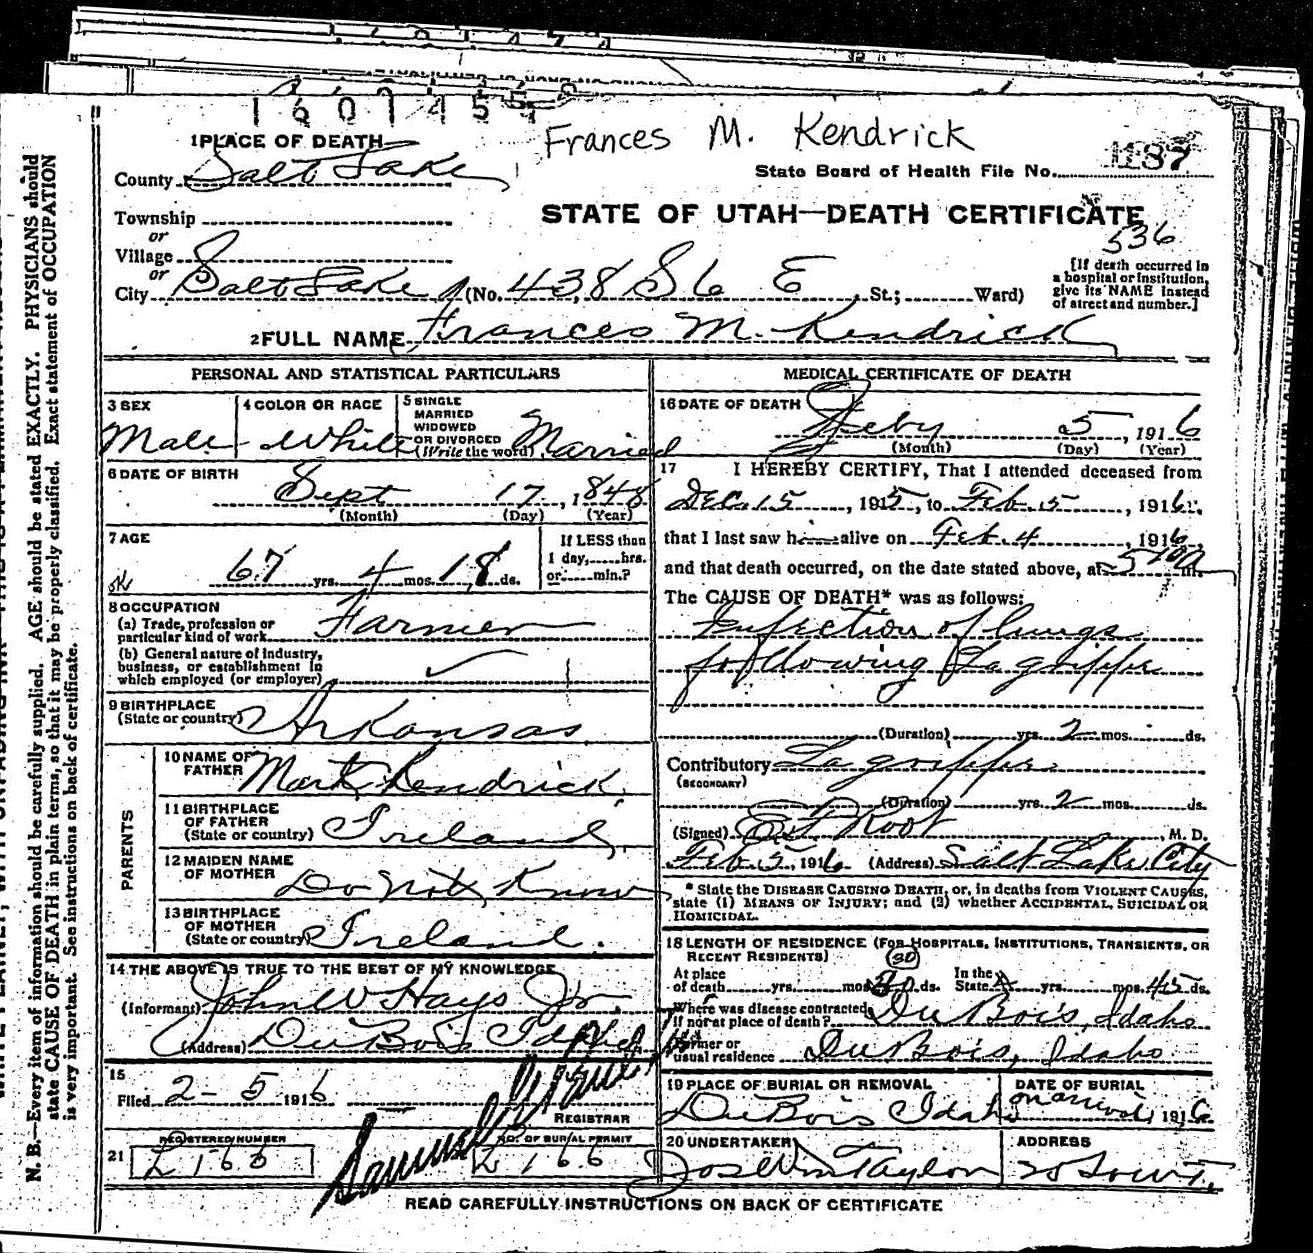 Frances M. Kendrick
1 PLACE OF DEATH
County Salt Lake
State Board of Health File No. 187
Township
or
Village
or
City Salt Lake (No. 438 S 6 E St.; Ward)
STATE OF UTAH—DEATH CERTIFICATE
536
[If death occurred in
a hospital or institution,
give its NAME instead
of street and number.]
2 FULL NAME Frances M. Kendrick
PERSONAL AND STATISTICAL PARTICULARS
3 SEX
Male
4 COLOR OR RACE
White
5 SINGLE
MARRIED
WIDOWED
OR DIVORCED
(Write the word) Married
6 DATE OF BIRTH
Sept 17, 1848
(Month) (Day) (Year)
7 AGE
67 yrs. 4 mos. 18 ds.
If LESS than
1 day, hrs.
or min.?
8 OCCUPATION
(a) Trade, profession or
particular kind of work Farmer
(b) General nature of industry,
business, or establishment in
which employed (or employer)
9 BIRTHPLACE
(State or country) Arkansas
PARENTS
10 NAME OF
FATHER Mark Kendrick
11 BIRTHPLACE
OF FATHER
(State or country) Ireland
12 MAIDEN NAME
OF MOTHER Do Not Know
13 BIRTHPLACE
OF MOTHER
(State or country) Ireland.
14 THE ABOVE IS TRUE TO THE BEST OF MY KNOWLEDGE
(Informant) John W Hays Jr.
(Address) DuBois Idaho
15
Filed 2-5 1916
REGISTRAR
21
REGISTERED NUMBER
L 166
NO. OF BURIAL PERMIT
L 166
MEDICAL CERTIFICATE OF DEATH
16 DATE OF DEATH
Feby 5, 1916
(Month) (Day) (Year)
17 I HEREBY CERTIFY, That I attended deceased from
Dec. 15, 1915, to Feb. 5, 1916,
that I last saw h alive on Feb. 4, 1916,
and that death occurred, on the date stated above, at m.
The CAUSE OF DEATH* was as follows:
Infection of lungs
following La grippe
(Duration) yrs. 2 mos. ds.
Contributory La grippe
(SECONDARY)
(Duration) yrs. 2 mos. ds.
(Signed) Root M. D.
Feb 5, 1916 (Address) Salt Lake City
* State the DISEASE CAUSING DEATH, or, in deaths from VIOLENT CAUSES,
state (1) MEANS OF INJURY; and (2) whether ACCIDENTAL, SUICIDAL OR
HOMICIDAL.
18 LENGTH OF RESIDENCE (FOR HOSPITALS, INSTITUTIONS, TRANSIENTS, OR
RECENT RESIDENTS)
At place
of death yrs. mos. 30 ds. In the
State yrs. mos. 45 ds.
Where was disease contracted,
if not at place of death? DuBois, Idaho
Former or
usual residence DuBois, Idaho
19 PLACE OF BURIAL OR REMOVAL
DuBois Idaho
DATE OF BURIAL
1916
20 UNDERTAKER
Jos. Wm Taylor
ADDRESS
READ CAREFULLY INSTRUCTIONS ON BACK OF CERTIFICATE
N. B.—Every item of information should be carefully supplied. AGE should be stated EXACTLY. PHYSICIANS should
state CAUSE OF DEATH in plain terms, so that it may be properly classified. Exact statement of OCCUPATION
is very important. See instructions on back of certificate.